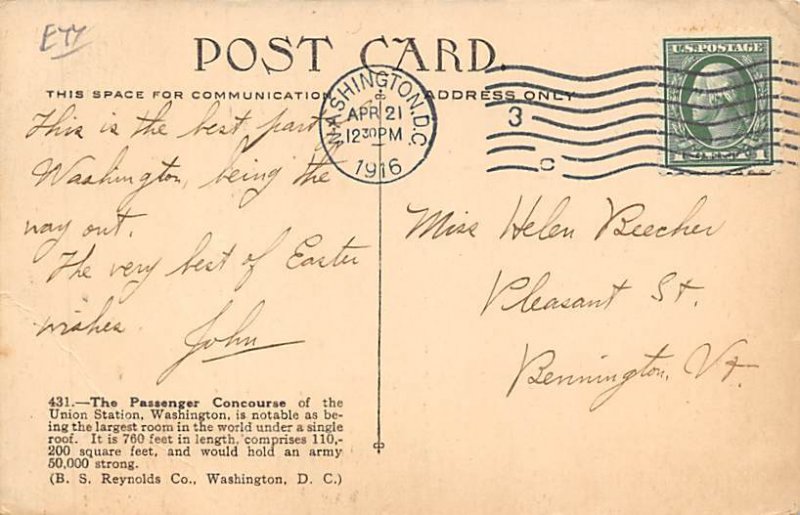 E77
POST CARD.
THIS SPACE FOR COMMUNICATION
ADDRESS ONLY
WASHINGTON, D.C.
APR 21
12 30 PM
1916
3
C
U.S. POSTAGE
This is the best part
Washington, being the
way out.
The very best of Easter
wishes.
John
Miss Helen Beecher
Pleasant St.
Bennington, Vt.
431.—The Passenger Concourse of the
Union Station, Washington, is notable as be-
ing the largest room in the world under a single
roof. It is 760 feet in length, comprises 110,-
200 square feet, and would hold an army
50,000 strong.
(B. S. Reynolds Co., Washington, D. C.)